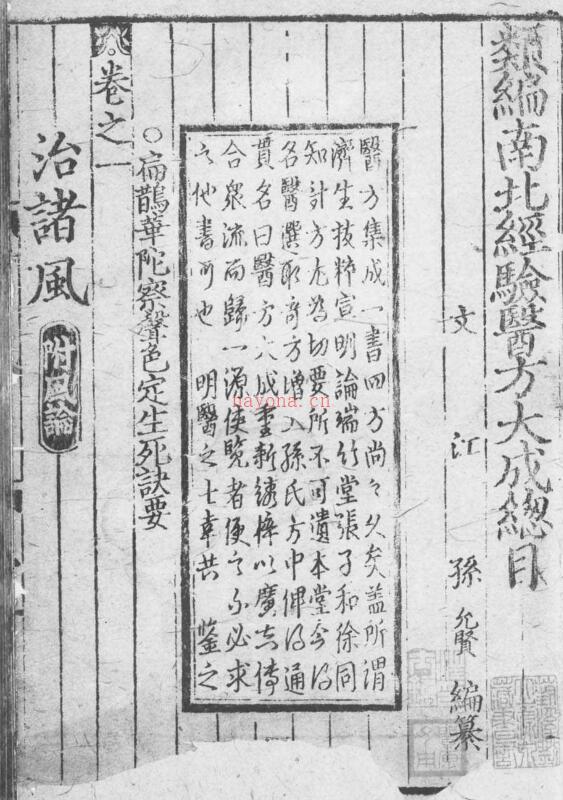 類編南北經驗醫方大成總目
文江 孫允賢 編纂
醫方集成一書四方尚之久矣盖所謂
濟生拔粹宣明論瑞竹堂張子和徐同
知計方尤為切要所不可遺本堂今得
名醫選取奇方增入孫氏方中俾得通
貫名曰醫方大成重新綉梓以廣其傳
合衆流而歸一源使覽者便之不必求
之他書可也 明醫之士幸共 鑒之
○扁鵲華陀察聲色定生死訣要
卷之一
治諸風 附風論
nayona.cn